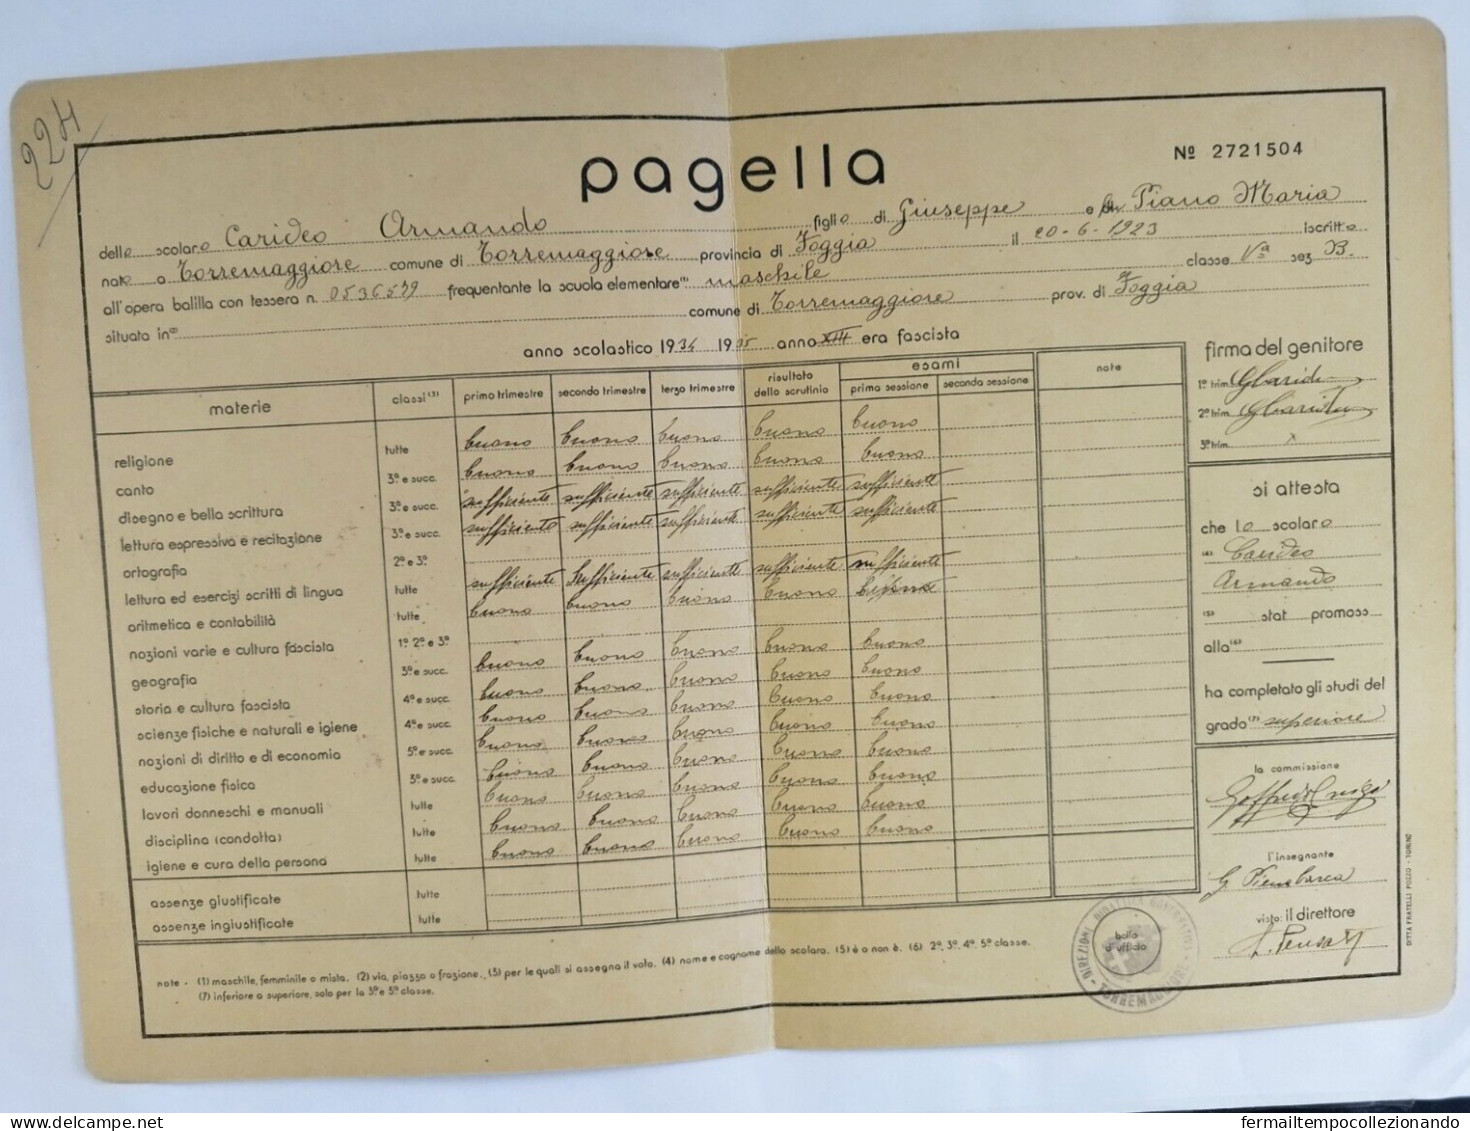 224
pagella
Nº 2721504
dello scolaro Carideo Armando figlio di Giuseppe e di Piano Maria
nato a Torremaggiore comune di Torremaggiore provincia di Foggia il 20-6-1923 iscritto
all'opera balilla con tessera n. 0536579 frequentante la scuola elementare⁽¹⁾ maschile classe Vª sez B.
situata in⁽²⁾ comune di Torremaggiore prov. di Foggia
anno scolastico 1934 1935 anno XIII era fascista
materie classi⁽³⁾ primo trimestre secondo trimestre terzo trimestre risultato dello scrutinio esami prima sessione seconda sessione note
religione tutte buono buono buono buono buono
canto 3ª e succ. buono buono buono buono buono
disegno e bella scrittura 3ª e succ. sufficiente sufficiente sufficiente sufficiente sufficiente
lettura espressiva e recitazione 3ª e succ. sufficiente sufficiente sufficiente sufficiente sufficiente
ortografia 2ª e 3ª
lettura ed esercizi scritti di lingua tutte sufficiente sufficiente sufficiente sufficiente sufficiente
aritmetica e contabilità tutte buono buono buono buono
nozioni varie e cultura fascista 1ª 2ª e 3ª
geografia 3ª e succ. buono buono buono buono buono
storia e cultura fascista 4ª e succ. buono buono buono buono buono
scienze fisiche e naturali e igiene 4ª e succ. buono buono buono buono buono
nozioni di diritto e di economia 5ª e succ. buono buono buono buono buono
educazione fisica 3ª e succ. buono buono buono buono buono
lavori donneschi e manuali tutte buono buono buono buono buono
disciplina (condotta) tutte buono buono buono buono buono
igiene e cura della persona tutte buono buono buono buono buono
assenze giustificate tutte
assenze ingiustificate tutte
note - (1) maschile, femminile o mista. (2) via, piazza o frazione. (3) per le quali si assegna il voto. (4) nome e cognome dello scolaro. (5) è o non è. (6) 2ª, 3ª, 4ª, 5ª classe.
(7) inferiore o superiore, solo per la 3ª e 5ª classe.
firma del genitore
1º trim. G Carideo
2º trim. G Carideo
3º trim. x
si attesta
che lo scolaro
⁽⁴⁾ Carideo
Armando
⁽⁵⁾ stat promoss
alla⁽⁶⁾
ha completato gli studi del
grado⁽⁷⁾ superiore
la commissione
l'insegnante
visto: il direttore
bollo d'ufficio
TORREMAGGIORE
DITTA FRATELLI POZZO - TORINO
fermailtempocollezionando
delcampe.net
fermailtempocollezionando